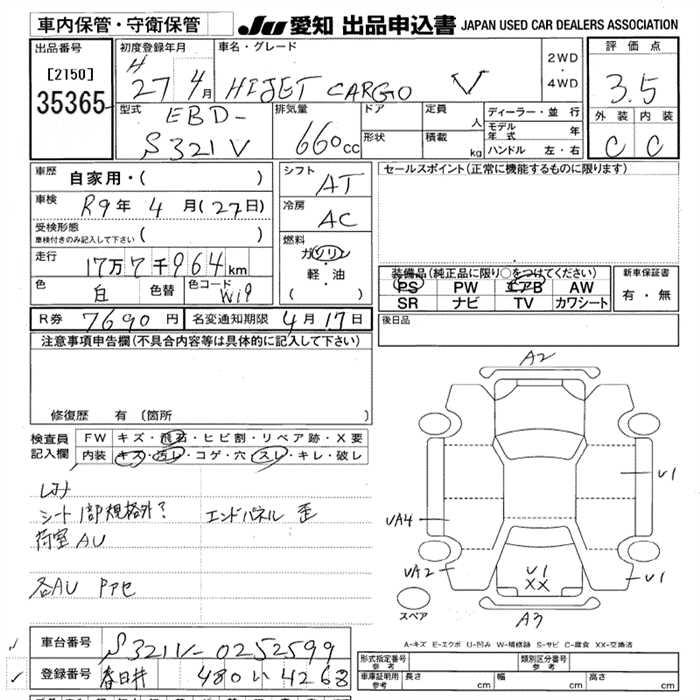 車内保管・守衛保管
JU 愛知 出品申込書 JAPAN USED CAR DEALERS ASSOCIATION
出品番号
[2150]
35365
初度登録年月
H 27 4月
車名・グレード
HIJET CARGO V
2WD
・
4WD
評価点
3.5
外装 内装
C C
型式
EBD-
S321V
排気量
660cc
ドア
形状
定員
人
積載
kg
ディーラー・並行
モデル年式 年
ハンドル 左・右
車歴 自家用・( )
車検 R9年 4月(27日)
受検形態
車検付きのみ記入して下さい ( )
走行 17万7千964km
色 白 色替 色コード W19
シフト AT
冷房 AC
燃料
ガソリン
・
軽・油
( )
セールスポイント(正常に機能するものに限ります)
装備品(純正品に限り○をつけてください)
PS PW エアB AW
SR ナビ TV カワシート
新車保証書
有・無
R券 7690円 名変通知期限 4月17日
後日品
注意事項申告欄(不具合内容等は具体的に記入して下さい)
修復歴 有 (箇所 )
検査員
記入欄
FW キズ・飛石・ヒビ割・リペア跡・X要
内装 キズ・汚レ・コゲ・穴・スレ・キレ・破レ
シート1部規格外? エンドパネル 歪
荷室AU
各AU Pアセ
A2
U1
UA4
UA2
U1
XX
U1
A3
スペア
A-キズ E-エクボ U-凹み W-補修跡 S-サビ C-腐食 XX-交換済
車台番号 S321V-0252599
登録番号 春日井 480 い 4268
形式指定番号
参考
類別区分番号
参考
車庫証明用
参考
長さ cm 幅 cm 高さ cm